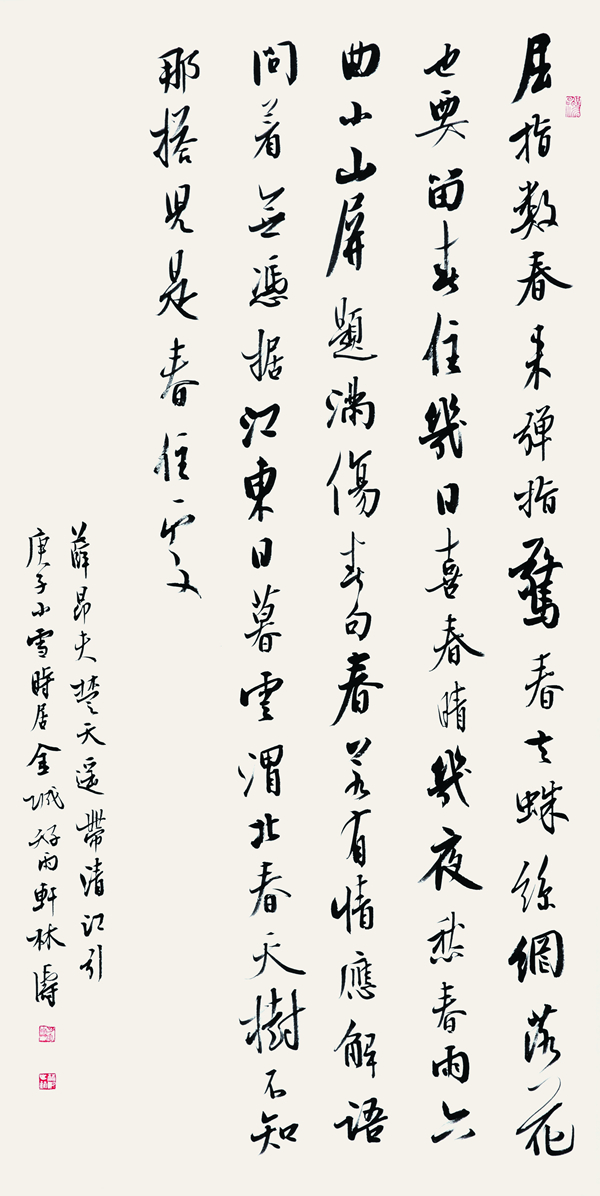 屈指數春來彈指驚春去蛛絲網落花
也要留春住幾日喜春晴幾夜愁春雨六
曲小山屏題滿傷春句春若有情應解語
問着無憑據江東日暮雲渭北春天樹不知
那搭兒是春住處
薛昂夫楚天遥帶清江引
庚子小雪時居金城好雨軒林濤